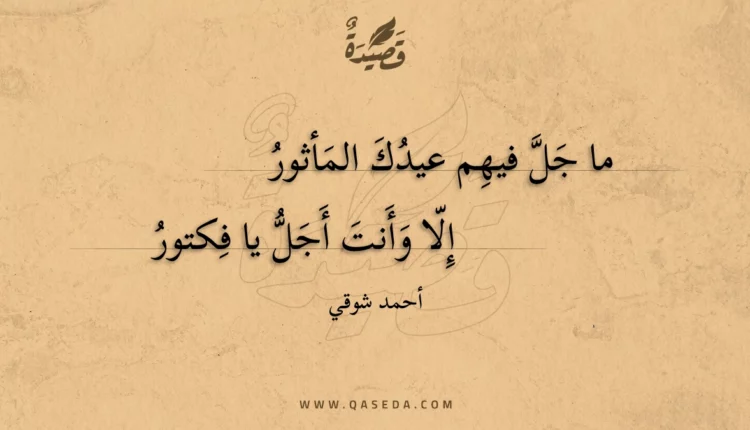 قَصِيدَةٌ
ما جَلَّ فيهِم عيدُكَ المَأثورُ
إِلّا وَأَنتَ أَجَلُّ يا فِكتورُ
أحمد شوقي
WWW.QASEDA.COM